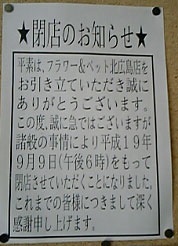 ★閉店のお知らせ★
平素は、フラワー&ペット北広島店を
お引き立ていただき誠に
ありがとうございます。
この度、誠に急ではございますが
諸般の事情により平成19年
9月9日(午後6時)をもって
閉店させていただくことになりました。
これまでの皆様につきまして深く
感謝申し上げます。